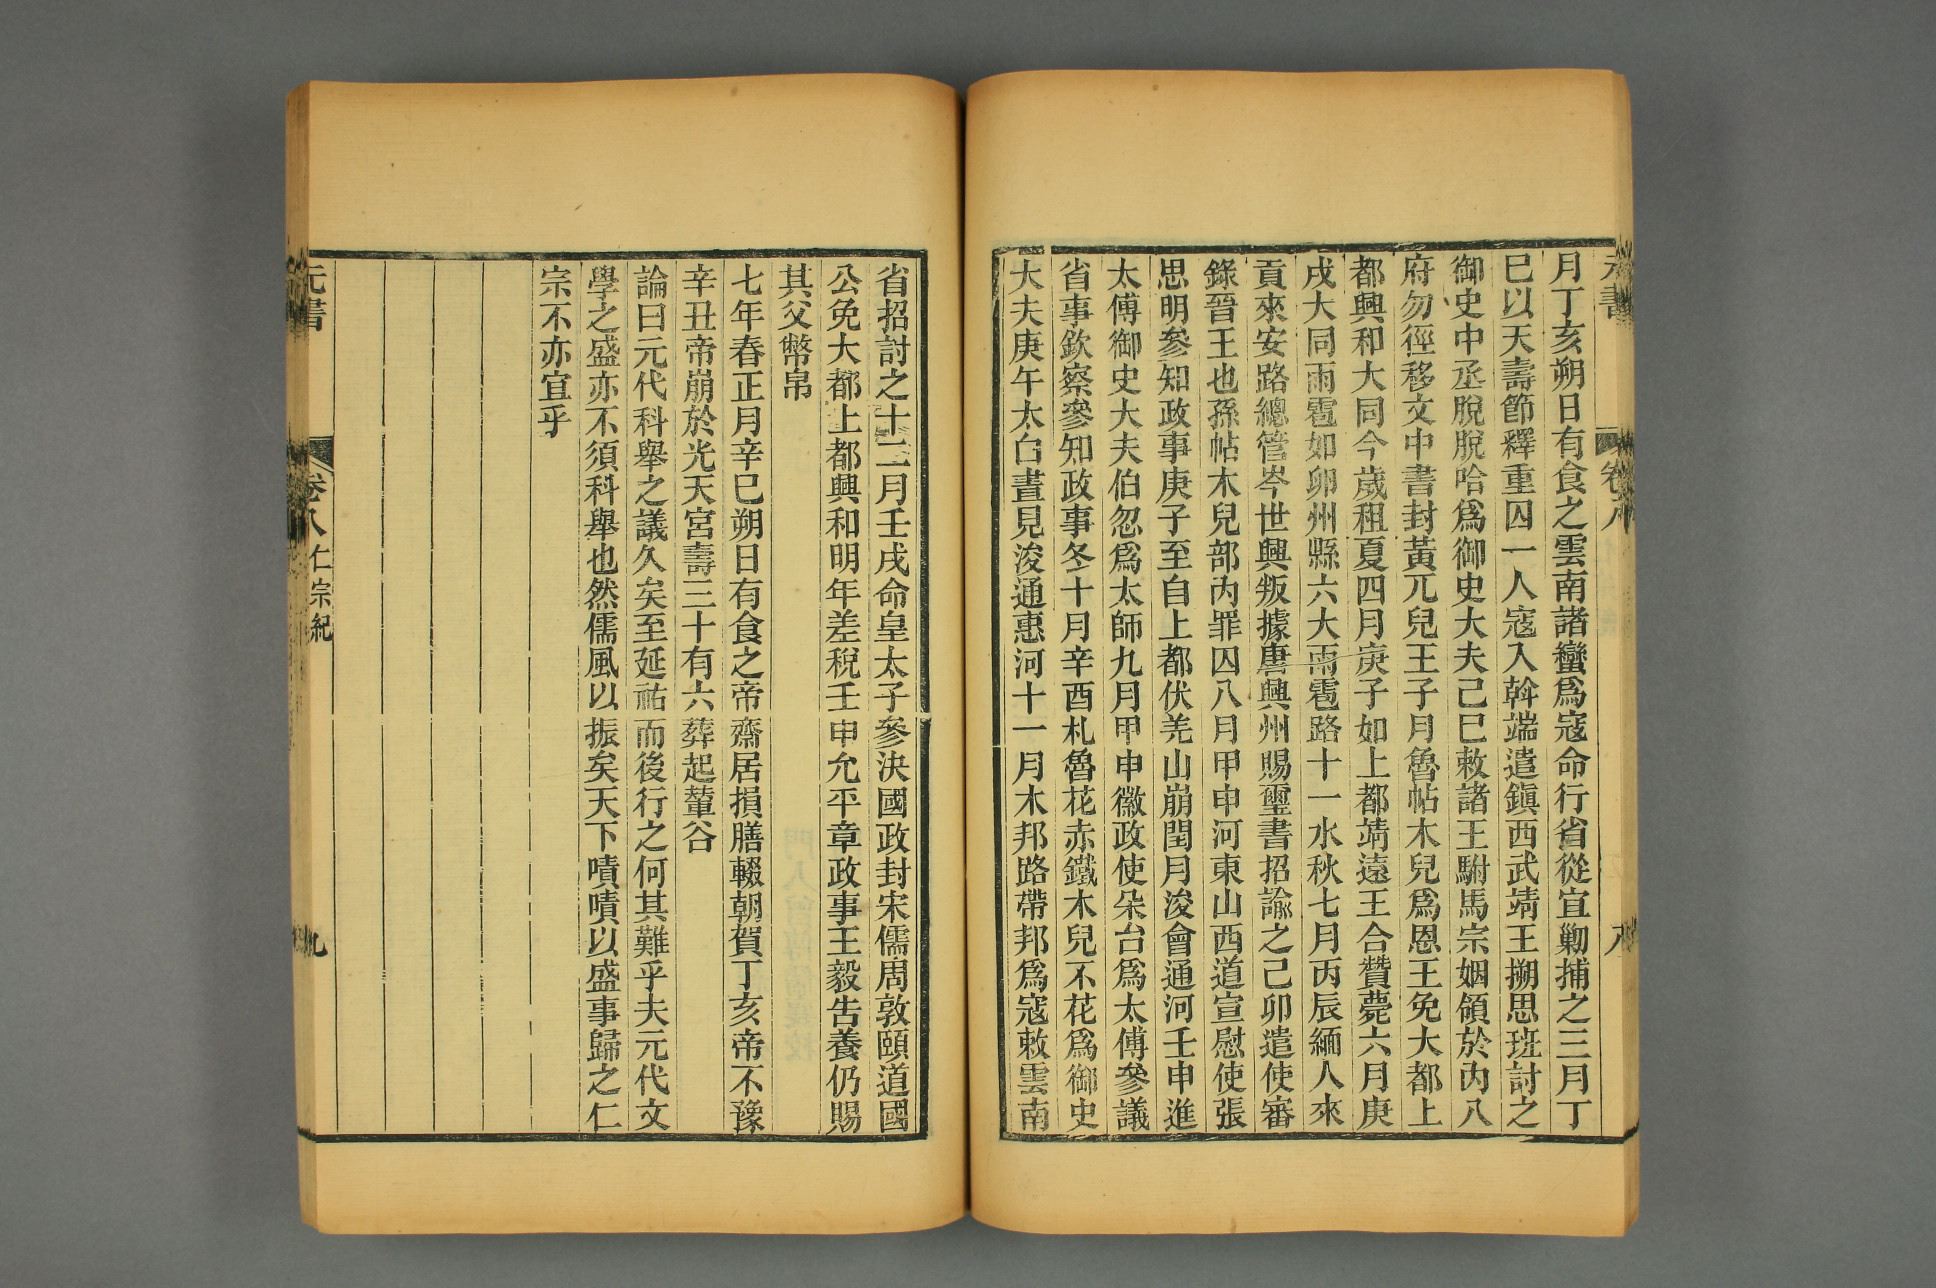 元書
卷八
八
月丁亥朔日有食之雲南諸蠻爲寇命行省從宜勦捕之三月丁
巳以天壽節釋重囚一人寇入斡端遣鎭西武靖王搠思班討之
御史中丞脫脫哈爲御史大夫己巳敕諸王駙馬宗姻領於內八
府勿徑移文中書封黃兀兒王子月魯帖木兒爲恩王免大都上
都興和大同今歲租夏四月庚子如上都靖遠王合贊薨六月庚
戌大同雨雹如卵州縣六大雨雹路十一水秋七月丙辰緬人來
貢來安路總管岑世興叛據唐興州賜璽書招諭之己卯遣使審
錄晉王也孫帖木兒部內罪囚八月甲申河東山西道宣慰使張
思明參知政事庚子至自上都伏羌山崩閏月浚會通河壬申進
太傅御史大夫伯忽爲太師九月甲申徽政使朵台爲太傅參議
省事欽察參知政事冬十月辛酉札魯花赤鐵木兒不花爲御史
大夫庚午太白晝見浚通惠河十一月木邦路帶邦爲寇敕雲南
省招討之十二月壬戌命皇太子參決國政封宋儒周敦頤道國
公免大都上都興和明年差稅壬申允平章政事王毅告養仍賜
其父幣帛
七年春正月辛巳朔日有食之帝齋居損膳輟朝賀丁亥帝不豫
辛丑帝崩於光天宮壽三十有六葬起輦谷
論曰元代科舉之議久矣至延祐而後行之何其難乎夫元代文
學之盛亦不須科舉也然儒風以振矣天下嘖嘖以盛事歸之仁
宗不亦宜乎
元書
卷八 仁宗紀
九